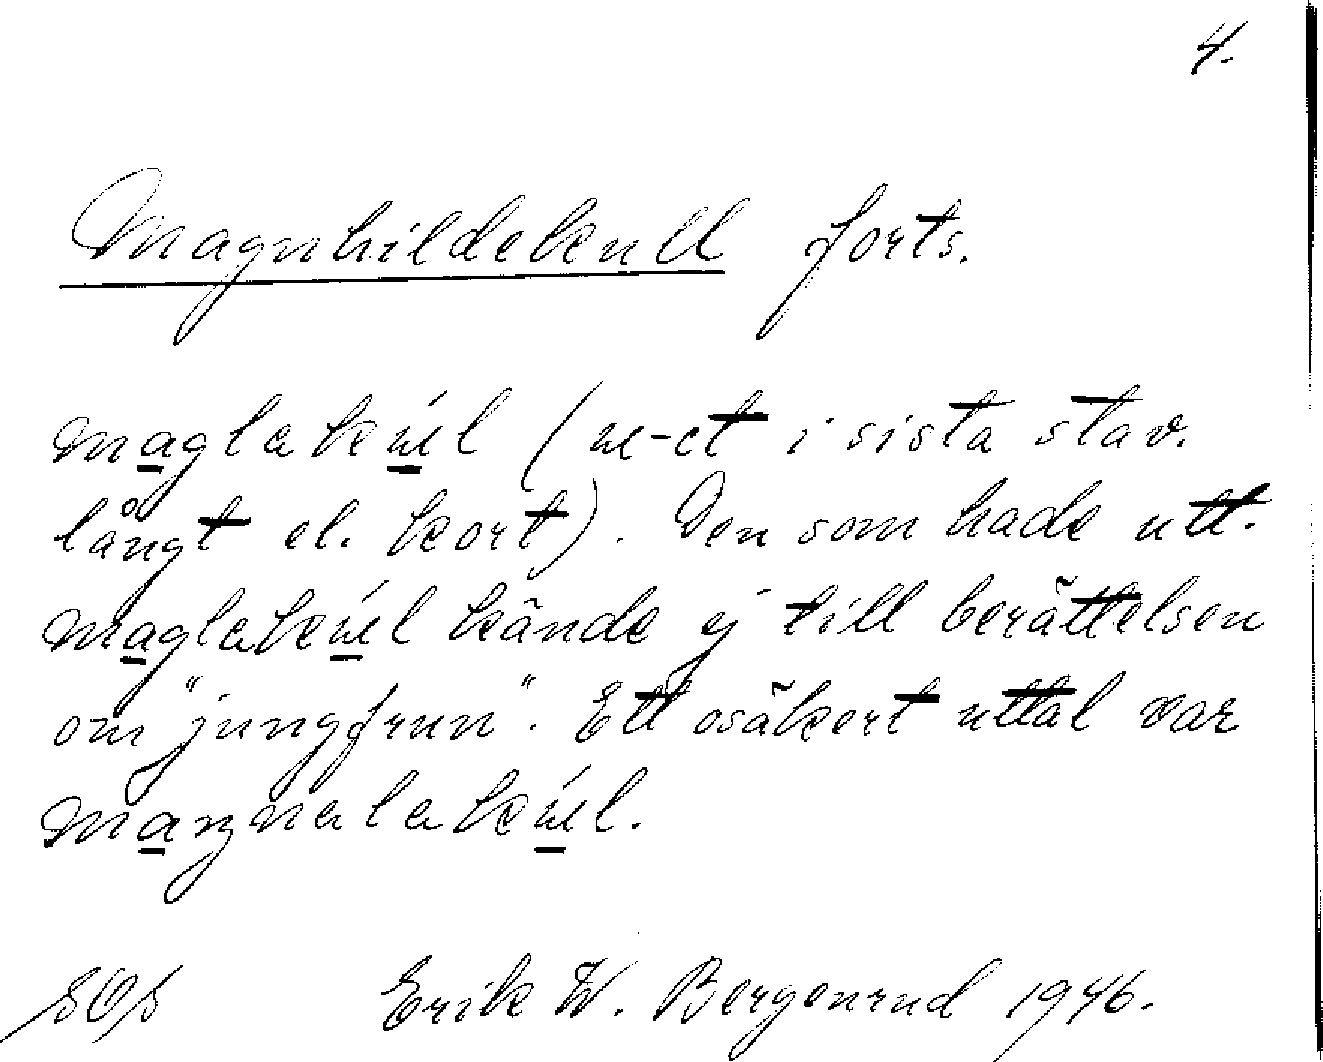 4.
Magnhildekull forts.
maglakúl (u-et i sista stav.
långt el. kort). Den som hade utt.
maglakúl kände ej till berättelsen
om "jungfrun". Ett osäkert uttal var
maŋnalakúl.
Erik W. Bergenrud 1946.